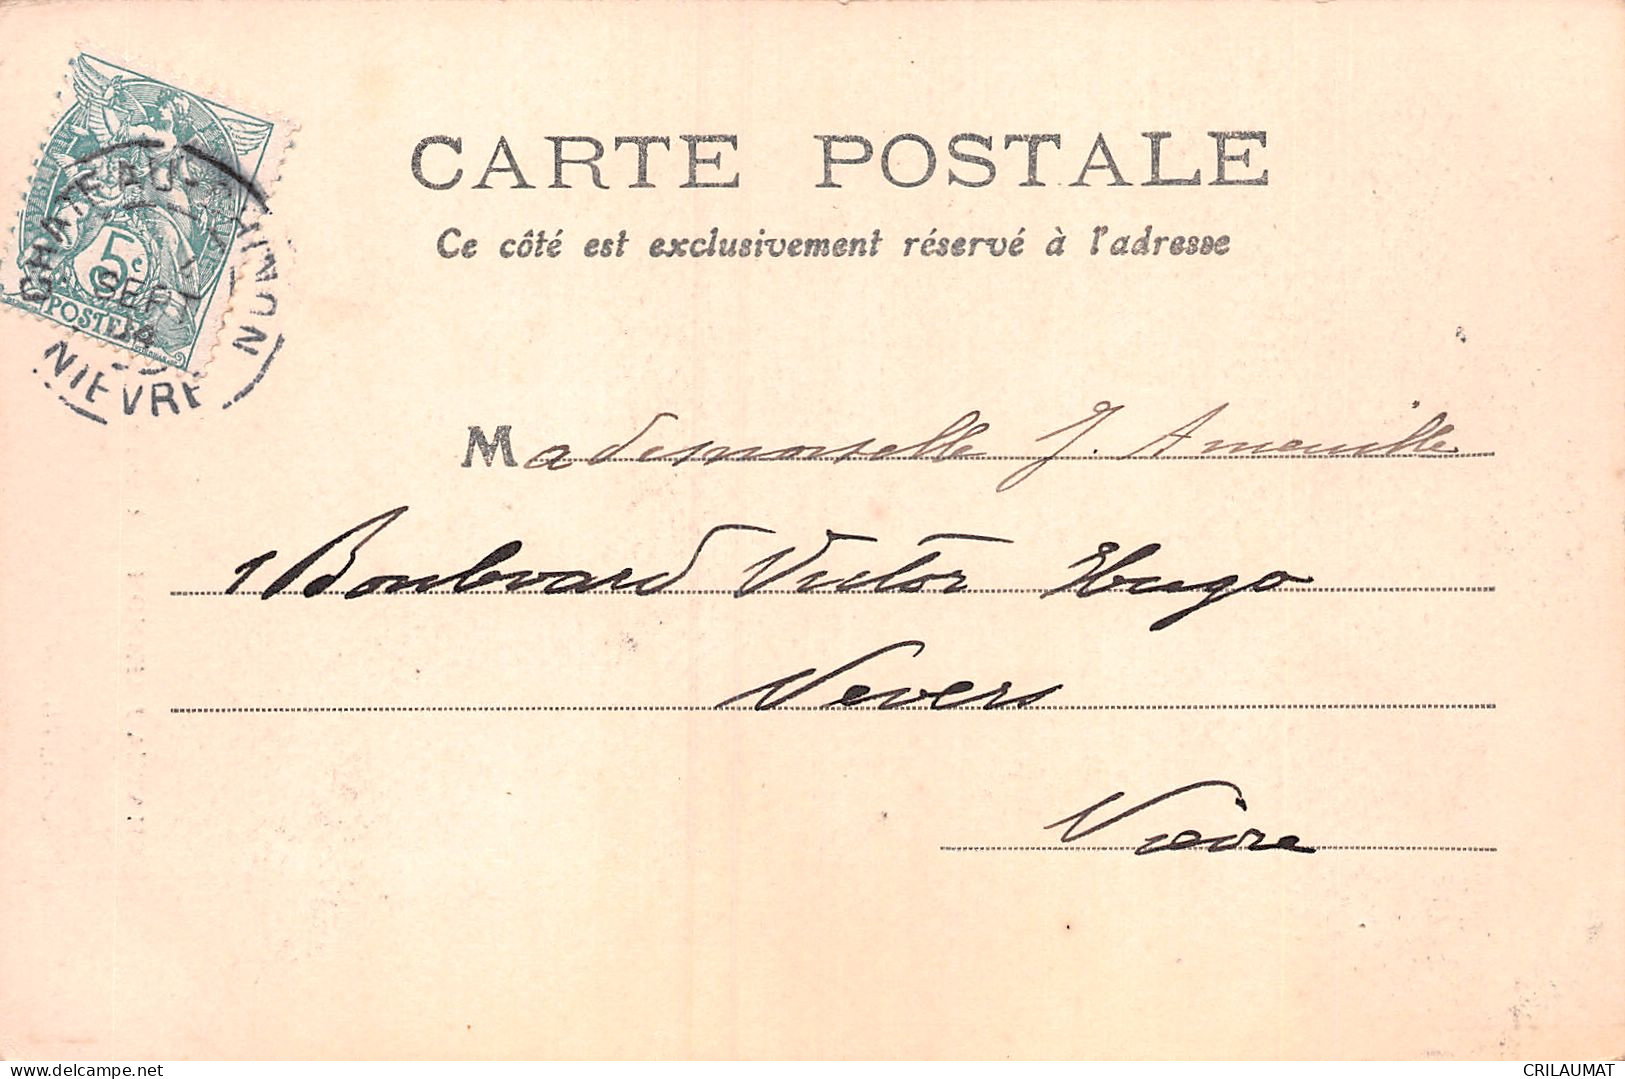 CARTE POSTALE
Ce côté est exclusivement réservé à l'adresse
5c
POSTES
CHATEAU-CHINON
SEPT
04
NIEVRE
Mademoiselle J. Ameuille
1 Boulevard Victor Hugo
Nevers
Nièvre
delcampe.net
CRILAUMAT